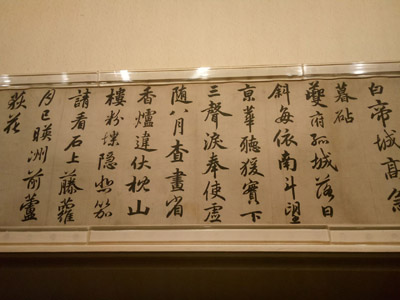 白帝城高急
暮砧
夔府孤城落日
斜每依南斗望
京華聽猨實下
三聲淚奉使虛
隨八月查畫省
香爐違伏枕山
樓粉堞隱悲笳
請看石上藤蘿
月已暎洲前蘆
荻花